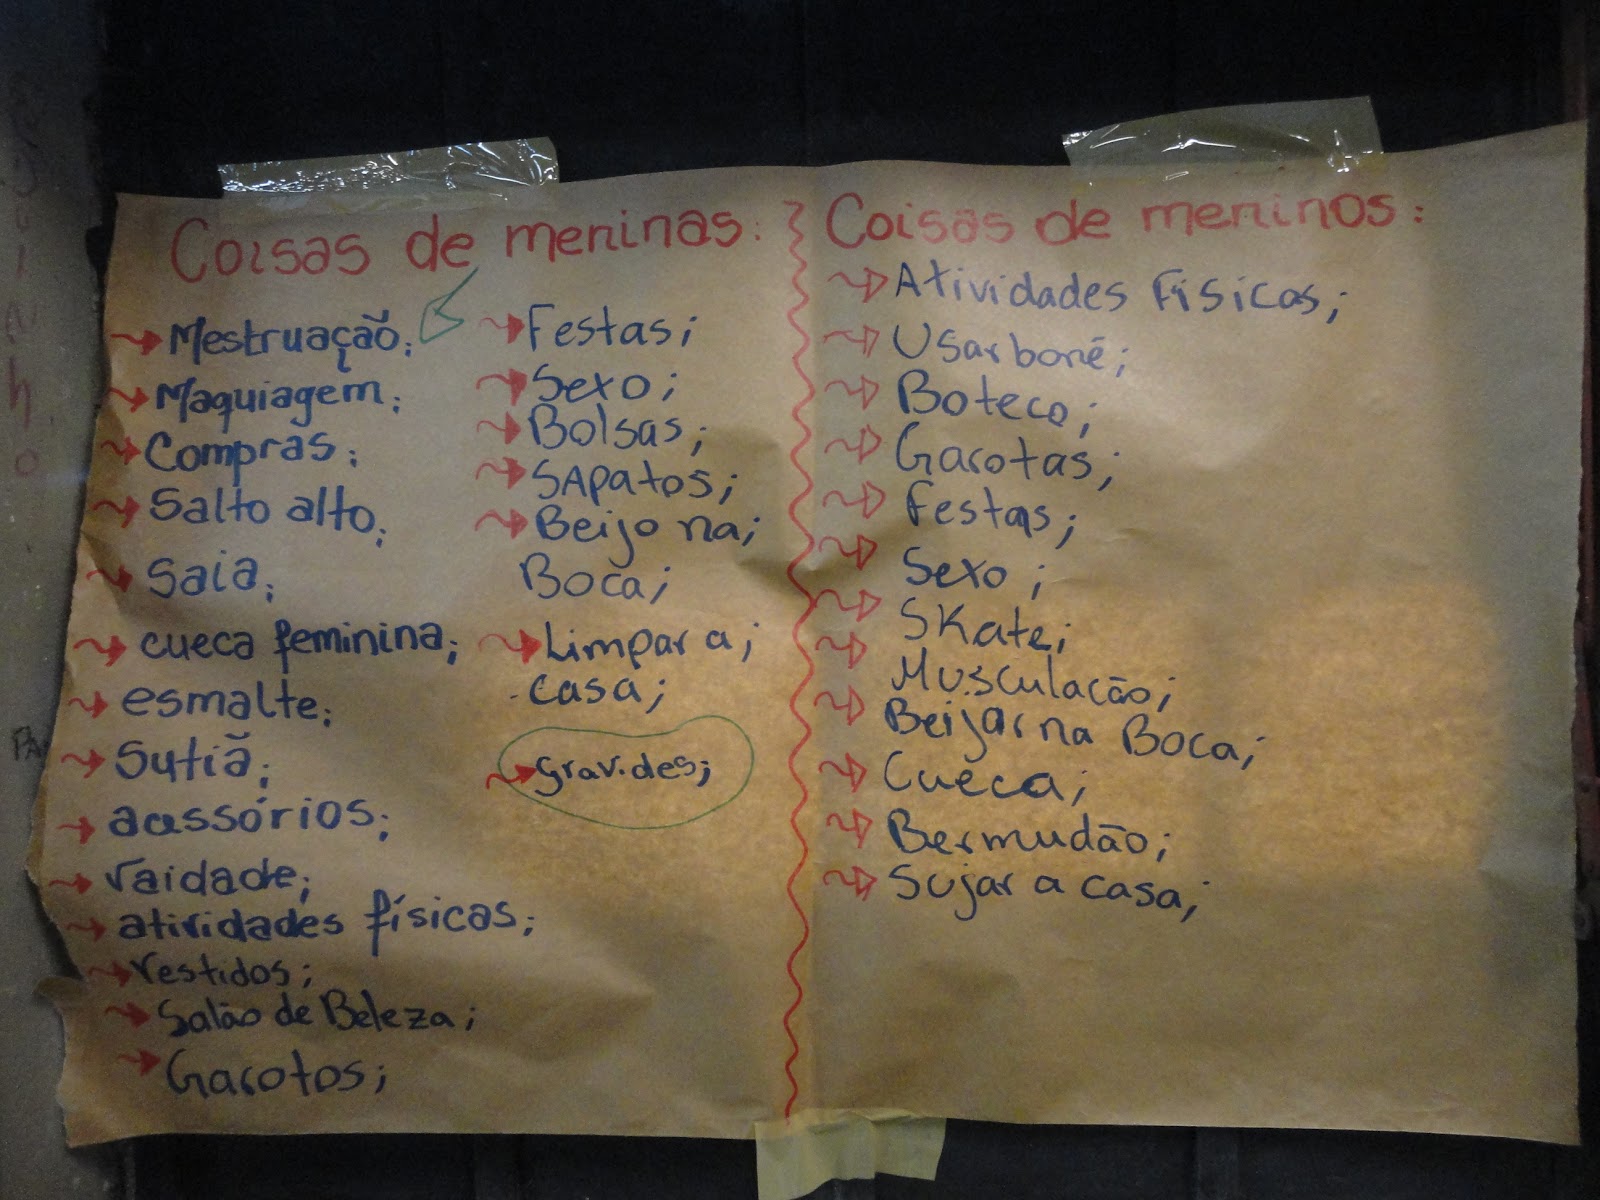 Coisas de meninas:
Mestruação;
Maquiagem;
Compras;
Salto alto;
Saia;
cueca feminina;
esmalte;
Sutiã;
acessórios;
vaidade;
atividades físicas;
vestidos;
Salão de Beleza;
Garotos;
Festas;
Sexo;
Bolsas;
SApatos;
Beijo na;
Boca;
Limpar a;
casa;
gravides;
Coisas de meninos:
Atividades Fisicas;
Usar boné;
Boteco;
Garotas;
Festas;
Sexo;
SKate;
Musculacão;
Beijar na Boca;
Cueca;
Bermudão;
Sujar a casa;